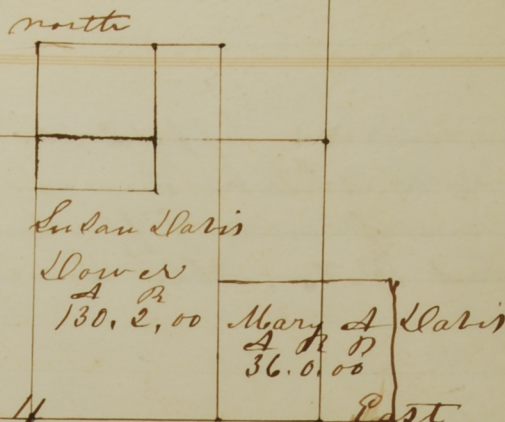 north
Susan Davis
Dower
A R
130. 2, 00
Mary A Davis
A R P
36. 0. 00
East